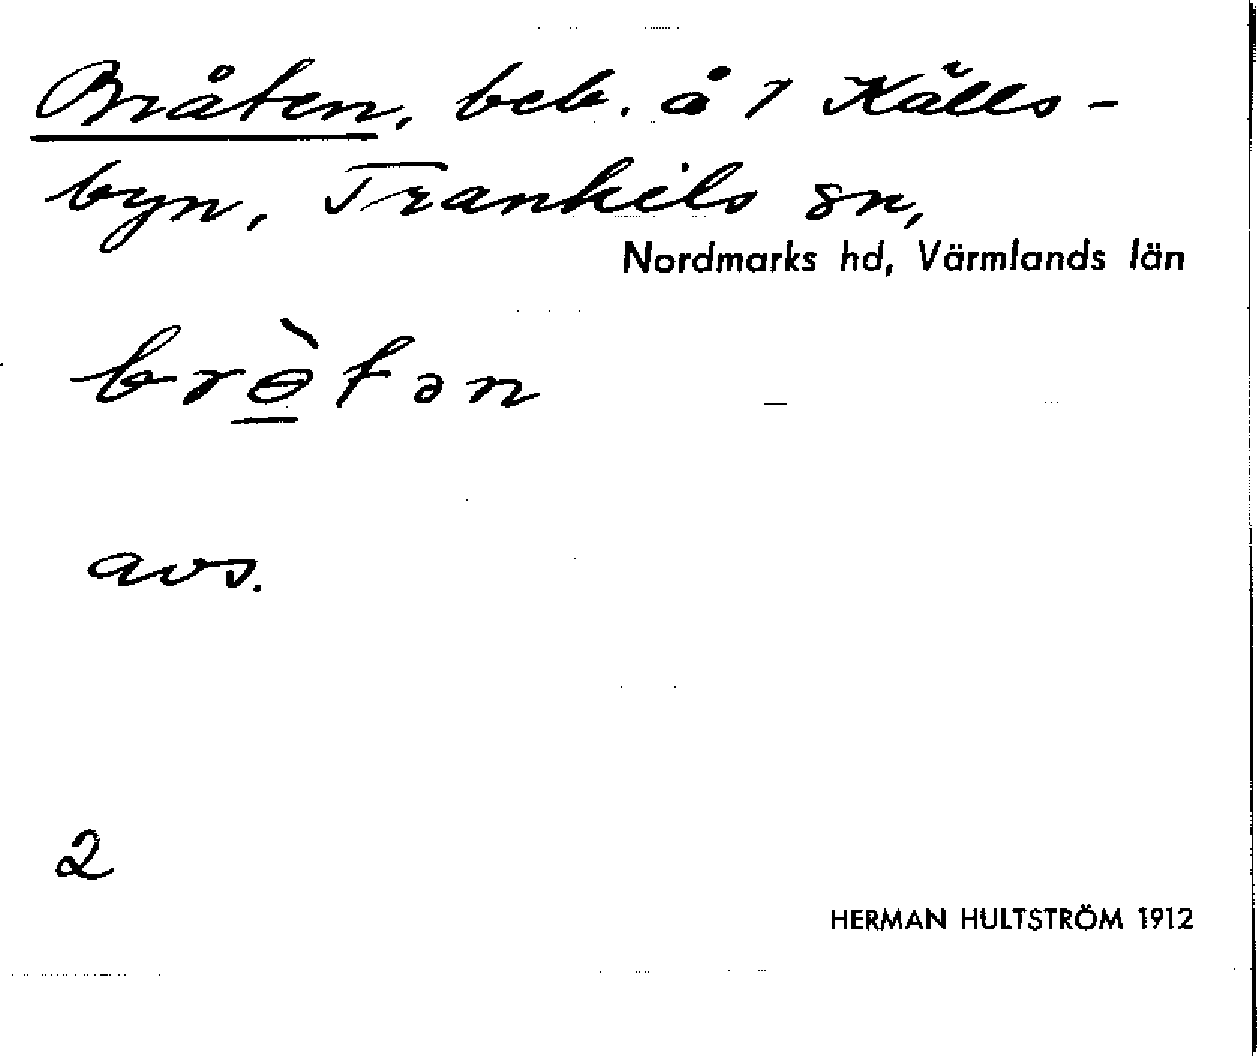 Bråten, beb. å 1 Källs-
byn, Trankils sn,
Nordmarks hd, Värmlands län
brɵ̠̀tən
avs.
2
HERMAN HULTSTRÖM 1912